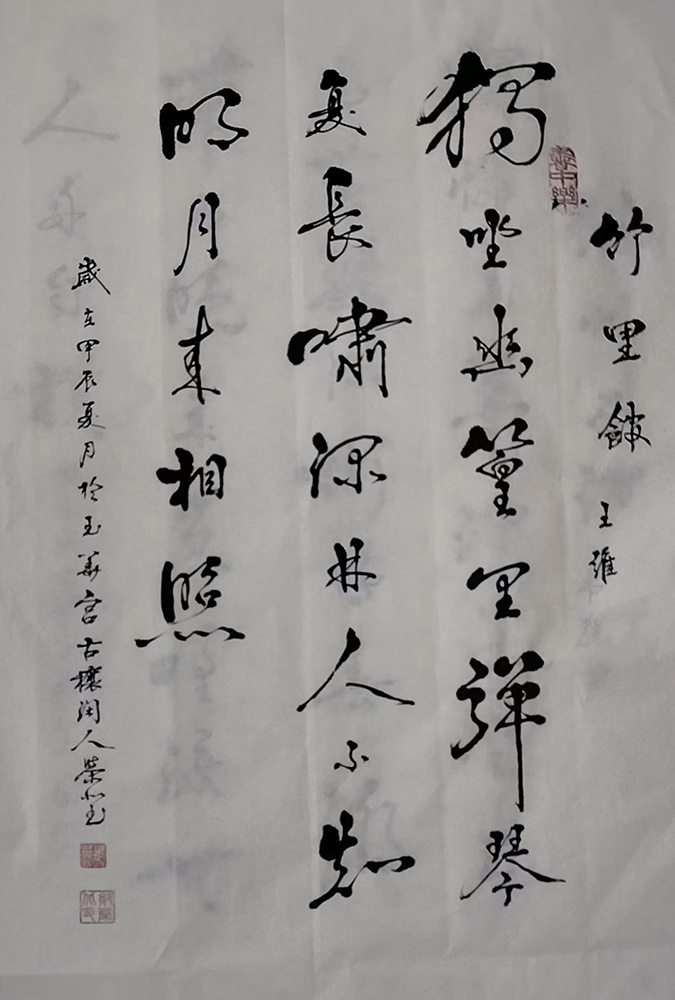 竹里館 王維
獨坐幽篁里彈琴
复長嘯深林人不知
明月来相照
歲在甲辰夏月於玉華宮古闲人